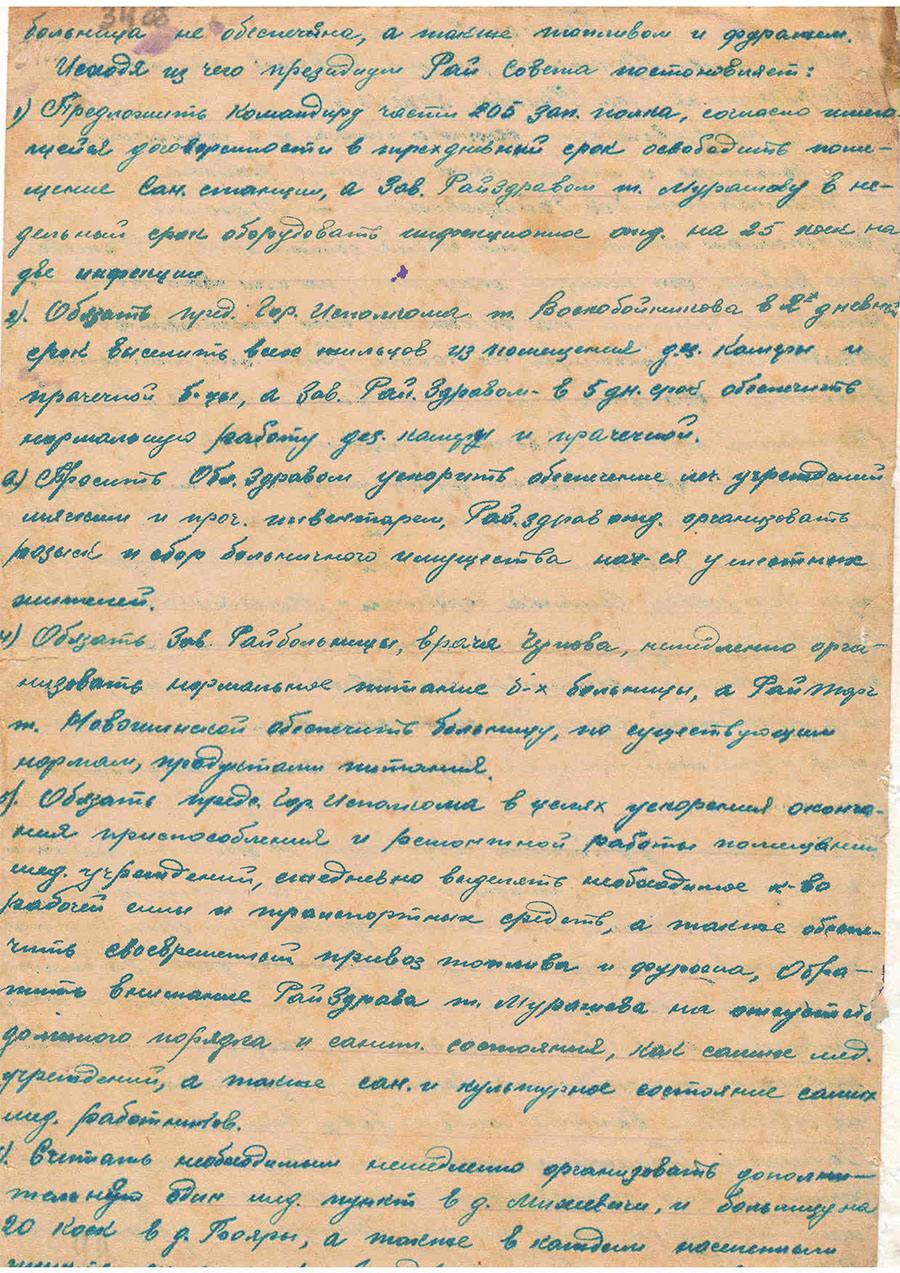 больница не обеспечена, а также топливом и фуражем.
Исходя из чего президиум Рай Совета постановляет:
1) Предложить командиру части 205 зап. полка, согласно имею-
щейся договоренности в трехдневный срок освободить поме-
щение Сан. станции, а Зав. Райздравом т. Мурашову в не-
дельный срок оборудовать инфекционное отд. на 25 коек на
две инфекции
2). Обязать пред. Гор. Исполкома т. Воскобойникова в 2х дневный
срок выселить всех жильцов из помещения дез. камеры и
прачечной б-цы, а Зав. Рай. Здравом - в 5 дн. срок обеспечить
нормальную работу дез. камеры и прачечной.
3) Просить Обл. Здравом ускорить обеспечение леч. учреждений
мягким и проч. инвентарем, Рай. здрав отд. организовать
розыск и сбор больничного имущества нах-ся у местных
жителей.
4) Обязать Зав. Райбольницы, врача, немедленно орга-
низовать нормальное питание б-х больницы, а РайТорг
т. обеспечить больницу, по существующим
нормам, продуктами питания.
5). Обязать пред. Гор Исполкома в целях ускорения оконча-
ния приспособления и ремонтной работы помещений
мед. учреждений, ежедневно выделять необходимое к-во
рабочей силы и транспортных средств, а также обеспе-
чить своевременный привоз топлива и фуража, Обра-
тить внимание РайЗдрава т. Мурашова на отсутств
должного порядка и санит. состояния, как самих мед.
учреждений, а также сан. и культурное состояние самих
мед. работников.
Считать необходимым немедленно организовать дополни-
тельную один мед. пункт в д. Михневичи, и больницу на
20 коек в д. Бояры, а также в каждом населенным